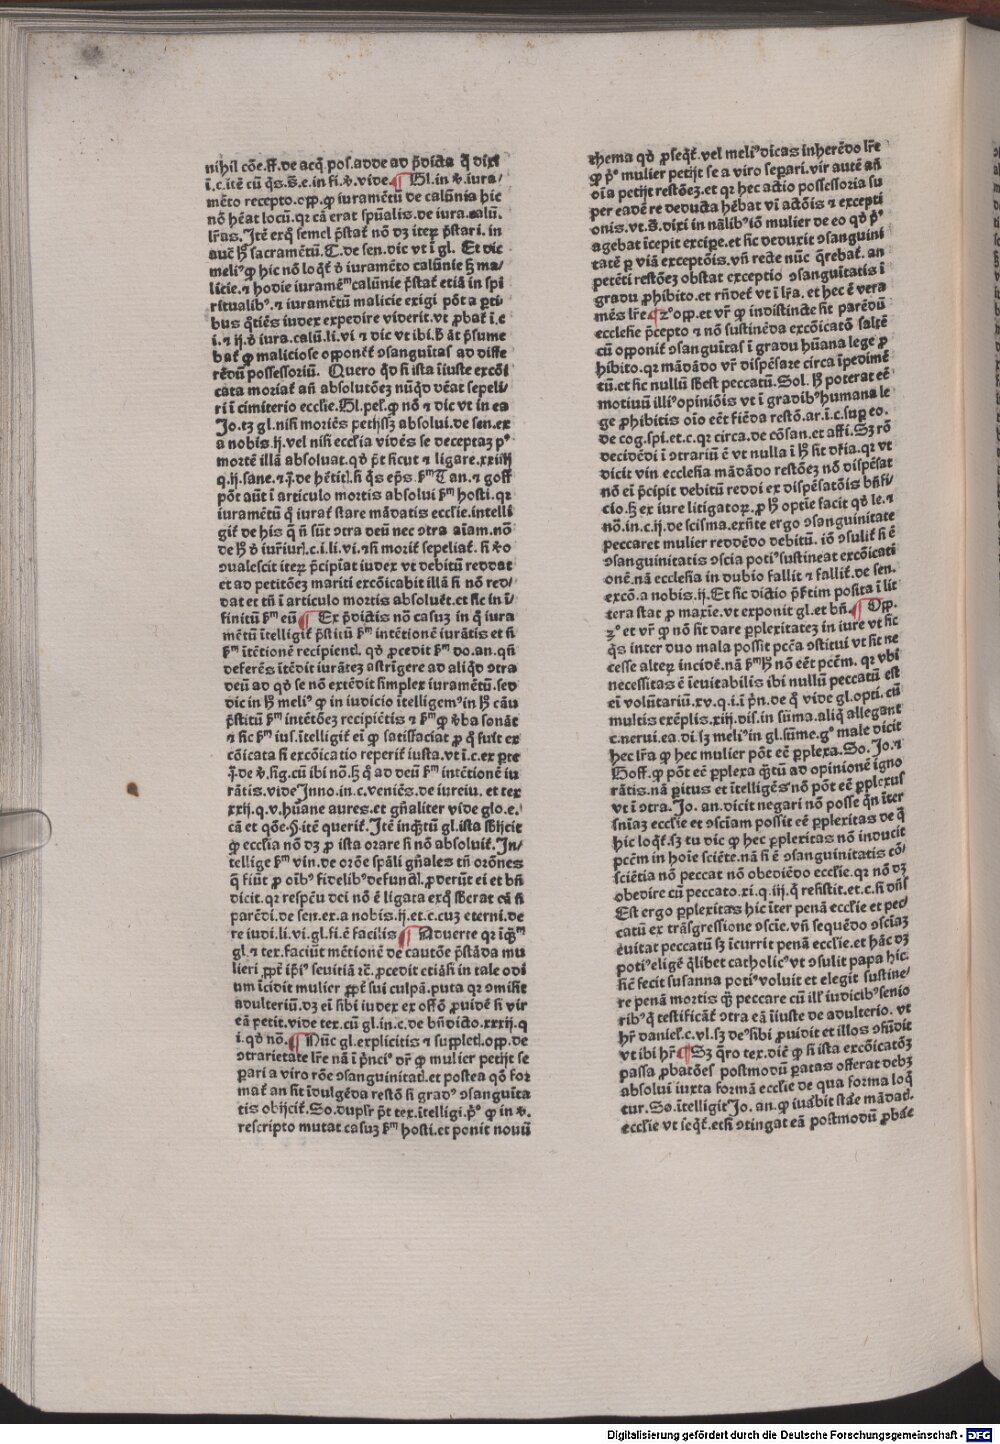 nihil cōe.ff.de acq̄ pos.adde ad p̄dicta q̄ dixi
ī.c.itē cū q̄s.S̄.e.in fi.⁊ v̄.vide.¶ Gl.in v̄.iura/
mēto recepto.opp.ꝙ iuramētū de calūnia hic
nō hēat locū.qꝛ cā erat spūalis.de iura.calū.
lr̄as. Itē exq̄ semel p̄stat̄ nō dꝫ iteꝝ p̄stari. in
auc̄ hꝫ sacramētū.C.de sen.dic vt ī gl. Et dic
meliꝰ ꝙ hic nō loq̄t̄ ð iuramēto calūnie sꝫ ma/
licie.⁊ hodie iuramēᵐ calūnie p̄stat̄ etiā in spi
ritualibꝰ.⁊ iuramētū malicie exigi pōt a ꝑti
bus q̄tiēs iudex expedire viderit.vt ꝓbat̄ ī.c
i.⁊ ij.ð iura.calū.li.vi ⁊ dic vt ibi.h̄ āt p̄sume
bat̄ ꝙ maliciose opponēt̄ ɔsanguītas ad diffe
rēdū possessoriū. Quero qd̄ si ista īiuste excōi
cata moriat̄ añ absolutōeꝫ nūqd̄ vēat sepeli/
ri ī cimiterio eccl̄ie. Gl. pet̄.ꝙ nō ⁊ dic vt in ea
Jo.tꝫ gl.nisi moriēs petijssꝫ absolui.de sen.ex
a nobis.ij.vel nisi eccl̄ia vidēs se deceptaꝫ pꝰ
mortē illā absoluat.qd̄ p̄t sicut ⁊ ligare.xxiiij
q.ij.sane.⁊ q̄.de hētic̄.si q̄s ep̄s.s̄ᵐ T an.⁊ goff
pōt aūt ī articulo mortis absolui s̄ᵐ hosti.qꝛ
iuramētū q̄ iurat̄ stare mādatis eccl̄ie.intelli
git̄ de his q̄ ñ sūt ɔtra deū nec ɔtra aīam.nō
de hꝫ ð iur̄iur̄.c.i.li.vi.⁊ si morit̄ sepeliat̄. si v̄o
ɔualescit iteꝝ p̄cipiat iudex vt debitū reddat
et ad petitōeꝫ mariti excōicabit illā si nō red/
dat et tñ ī articulo mortis absoluet̄.et sic in ī/
finitū s̄ᵐ eū ¶ Ex p̄dictis nō casuꝫ in q̄ iura
mētū ītelligit̄ p̄stitū s̄ᵐ intētionē iurātis et si
s̄ᵐ ītētionē recipient̄. qd̄ ꝓcedit s̄ᵐ do.an.qñ
deferēs ītēdit iurāteꝫ astrīgere ad aliqd̄ ɔtra
deū ad qd̄ se nō extēdit simplex iuramētū.sed
dic in hꝫ meliꝰ ꝙ in iudicio ītelligemꝰ in hꝫ cāu
p̄stitū s̄ᵐ intētōeꝫ recipiētis ⁊ s̄ᵐ ꝙ v̄ba sonāt
⁊ sic s̄ᵐ ius.ītelligit̄ ei ꝙ satisfaciat ꝓ q̄ fuit ex
cōicata si excōicatio reperit̄ iusta.vt ī.c.ex ꝑte
q̄.de v̄.sig.cū ibi nō.sꝫ q̄ ad deū s̄ᵐ intētionē iu
rātis.vide Inno.in.c.veniēs.de iureiu. et tex
xxij.q.v.hūane aures.et gñaliter vide glo.e.
cā et qōe.§.itē querit̄. Itē inq̄tū gl.ista sb̄ijcit
ꝙ eccl̄ia nō dꝫ ꝓ ista orare si nō absoluit̄. In/
tellige s̄ᵐ vin.de orōe spāli gñales tñ orōnes
q̄ fiūt ꝓ oībꝰ fidelibꝰ defunct̄.ꝓderūt ei et bñ
dicit.qꝛ respc̄u dei nō ē ligata exq̄ sb̄erat cā si
parēdi.de sen.ex.a nobis.ij.et.c.cuꝫ eterni.de
re iudi.li.vi.gl.fi.ē facilis ¶ Aduerte qꝛ īq̄ᵐ
gl.⁊ tex.faciūt mētionē de cautōe p̄stāda mu
lieri ꝓpt̄ ip̄iꝰ seuitiā ⁊c̄.ꝓcedit etiāsi in tale odi
um īcidit mulier ꝓpt̄ sui culpā.puta qꝛ ɔmisit
adulteriū.dꝫ eī sibi iudex ex offō ꝓuidē si vir
eā petit.vide tex.cū gl.in.c.de bñdicto.xxxij.q
i.qd̄ nō.¶ Nūc gl.explicitis ⁊ supplet̄.opp.de
ɔtrarietate lr̄e nā ī p̄nciꝰ dr̄ ꝙ mulier petijt se
ꝑari a viro rōe ɔsanguinitat̄.et postea qō for
mat̄ an sit īdulgēda restō si gradꝰ ɔsanguīta
tis obijcit̄. So.dupl̄r p̄t tex.ītelligi.pꝰ ꝙ in v̄.
rescripto mutat casuꝫ s̄ᵐ hosti.et ponit nouū
thema qd̄ ꝓseq̄t̄.vel meliꝰ dicas inherēdo lr̄e
ꝙ pꝰ mulier petijt se a viro seꝑari.vir autē añ
oīa petijt restōeꝫ.et qꝛ hec actio possessoria su
per eadē re deducta hēbat vī actōis ⁊ excepti
onis.vt.S̄.dixi in nālibꝰ iō mulier de eo qd̄ pꝰ
agebat īcepit exciꝑe.et sic deduxit ɔsanguini
tatē ꝑ viā exceptōis.vñ recte nūc q̄rebat̄. an
petēti restōeꝫ obstat exceptio ɔsanguītatis ī
gradu ꝓhibito.et rñdet̄ vt ī lr̄a. et hec ē vera
mēs lr̄e ¶ 2ᵒ opp.et vr̄ ꝙ indistincte sit parēdū
ecclesie p̄cepto ⁊ nō sustinēda excōicatō saltē
cū opponit̄ ɔsanguītas ī gradu hūana lege ꝓ
hibito.qꝛ mādādo vr̄ dispēsare circa īpedimē
tū.et sic nullū sb̄est peccatū. Sol. hꝫ poterat eē
motiuū illiꝰ opiniōis vt ī gradibꝰ humana le
ge ꝓhibitis oīo eēt fiēda restō.ar.ī.c.suꝑ eo.
de cog.spi.et.c.qꝛ circa.de cōsan.et affi. Sꝫ rō
decidēdi ī ɔtrariū ē vt nulla ī hꝫ sit dr̄ia.qꝛ vt
dicit vin ecclesia mādādo restōeꝫ nō dispēsat
nō eī p̄cipit debitū reddi ex dispēsatōis bñfi/
cio.sꝫ ex iure litigatoꝝ.ꝓ hꝫ optīe facit qd̄ le.⁊
nō.in.c.ij.de scisma.exn̄te ergo ɔsanguinitate
peccaret mulier reddēdo debitū. iō ɔsulit̄ si ē
ɔsanguinitatis ɔscia potiꝰ sustineat excōicati
onē.nā ecclesia in dubio fallit ⁊ fallit̄.de sen.
excō.a nobis.ij. Et sic dictio p̄s̄tim posita ī lit
tera stat ꝓ maxīe.vt exponit gl.et bñ.¶ Opp.
3ᵒ et vr̄ ꝙ nō sit dare ꝑplexitateꝫ in iure vt sic
q̄s inter duo mala possit pcc̄a ɔstitui vt sit ne
cesse alteꝝ incidē.nā s̄ᵐ hꝫ nō eēt pcc̄m. qꝛ vbi
necessitas ē īeuitabilis ibi nullū peccatū est
eī volūtariū.xv.q.i.ī pn̄.de q̄ vide gl.opti. cū
multis exēplis.xiij.dis.in sūma.aliq̄ allegant
c.nerui.ea.di.sꝫ meliꝰ in gl.sūme.gᵒ male dicit
hec lr̄a ꝙ hec mulier pōt eē ꝑplexa. So. Jo.⁊
Goff.ꝙ pōt eē ꝑplexa q̄tū ad opinionē igno
rātis.nā ꝑitus et ītelligēs nō pōt eē ꝑplexus
vt ī ɔtra. Jo. an.dicit negari nō posse qn̄ īter
sn̄iaꝫ eccl̄ie et ɔsciam possit eē ꝑplexitas de q̄
hic loq̄t̄.sꝫ tu dic ꝙ hec ꝑplexitas nō inducit
pcc̄m in hoīe sciēte.nā si ē ɔsanguinitatis cō/
sciētia nō peccat nō obediēdo eccl̄ie.qꝛ nō dꝫ
obedire cū peccato.xi.q.iij.q̄ resistit.et.c.si dn̄s
Est ergo ꝑplexitas hic īter penā eccl̄ie et pec/
catū ex trāsgressione ɔscīe.vñ sequēdo ɔscīaꝫ
euitat peccatū sꝫ īcurrit penā eccl̄ie.et hāc dꝫ
potiꝰ eligē q̄libet catholicꝰ vt ɔsulit papa hic.
sic̄ fecit susanna potiꝰ voluit et elegit sustine/
re penā mortis q̄ꝫ peccare cū ill̄ iudicibꝰ senio
ribꝰ q̄ testificāt̄ ɔtra eā īiuste de adulterio. vt
hr̄ daniel̄.c.vl.sꝫ deꝰ sibi ꝓuidit et illos ɔfūdit
vt ibi hr̄ ¶ Sꝫ q̄ro tex.dic̄ ꝙ si ista excōicatōꝫ
passa ꝓbatōes postmodū ꝑatas offerat debꝫ
absolui iuxta formā eccl̄ie de qua forma loq̄
tur. So.ītelligit Jo. an.ꝙ iuābit stāe mādat̄.
eccl̄ie vt seq̄t̄.etsi ɔtingat eā postmodū ꝓbāe
Digitalisierung gefördert durch die Deutsche Forschungsgemeinschaft - DFG